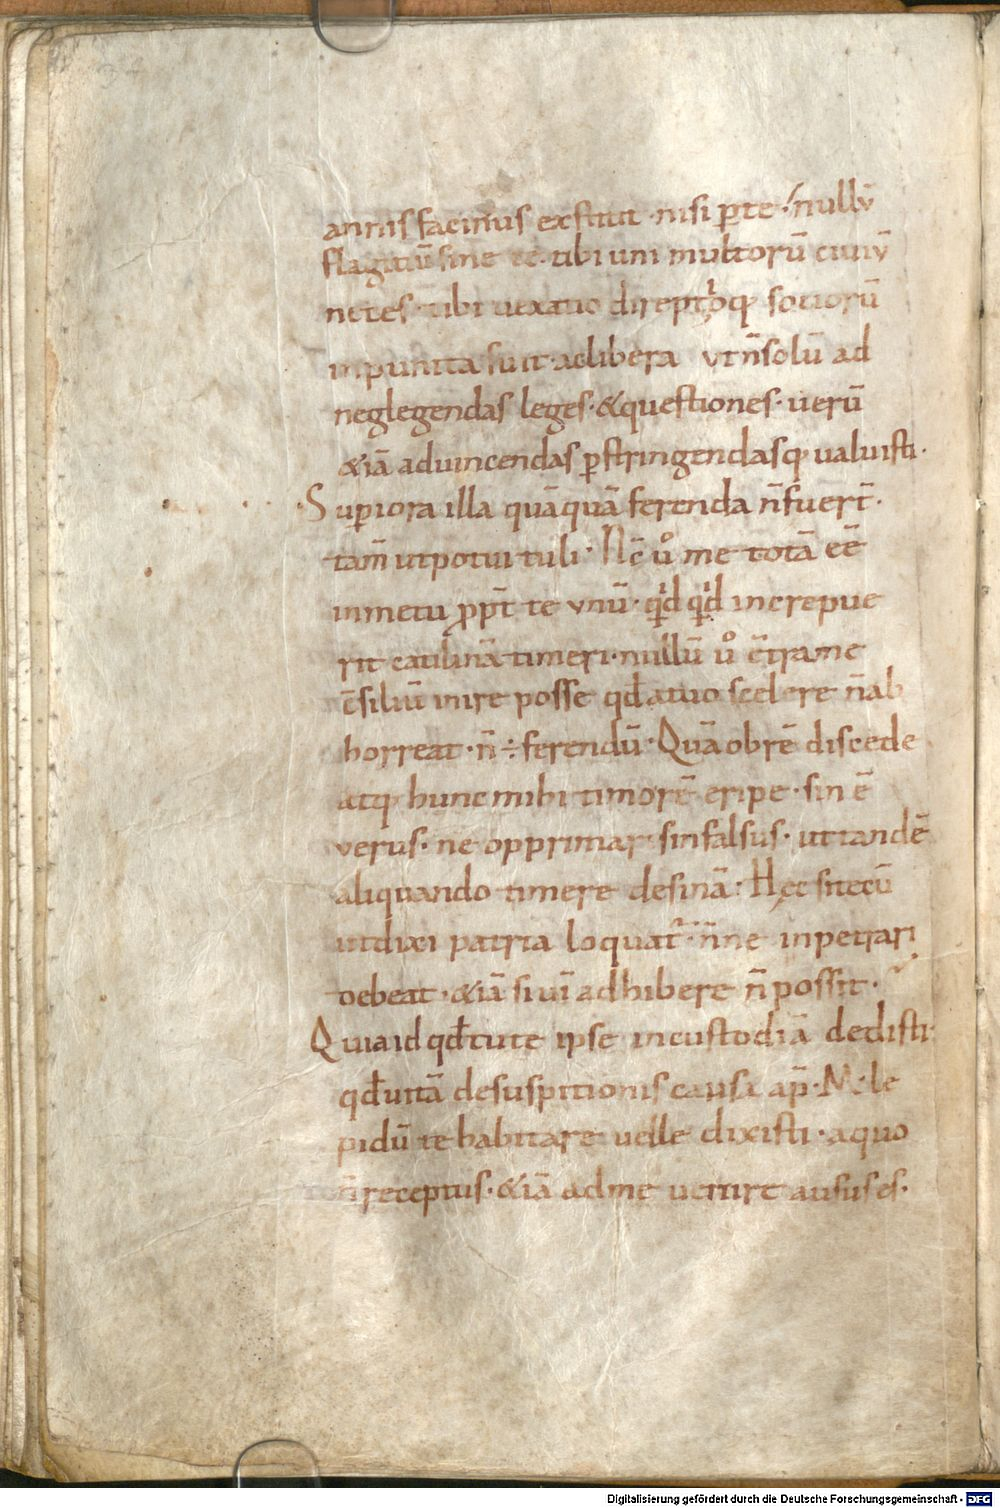 annis facinus exstitit · nisi ꝑ te · nullū
flagitiū sine te · tibi uni multorū ciuiū
neces · tibi uexatio direptioq; sotiorū
inpunita fuit · ac libera vt n̄ solū ad
neglegendas leges · & questiones · uerū
&iā aduincendas ꝑstringendasq; ualuisti ·
Suꝑiora illa quāquā ferenda n̄ fuer̄t ·
tam̄ ut potui tuli · Nc̄ u͛o me totā eē
inmetu ꝓpt̄ te vnū · qͥd qͥd increpue
rit catilinā timeri · nullū u͛o c̄tra me
c̄siliū inire posse qđ a tuo scelere n̄ ab
horreat · n̄ ÷ ferendū · Quā obrē discede
atq; hunc mihi timorē eripe · sin ē
verus · ne opprimar sin falsus · ut tandē
aliquando timere desinā : Hęc si tecū
ut dixi patria loquat᷑ · n̄ne inpetrari
debeat · &iā si uī adhibere n̄ possit ·
Quia id qđ tute ipse in custodiā dedisti
qđ uitā desuspitionis causa ap̄ · M · le
pidū te habitare uelle dixisti · a quo
n̄ receptus · &iā ad me uenire ausus es ·
Digitalisierung gefördert durch die Deutsche Forschungsgemeinschaft - DFG